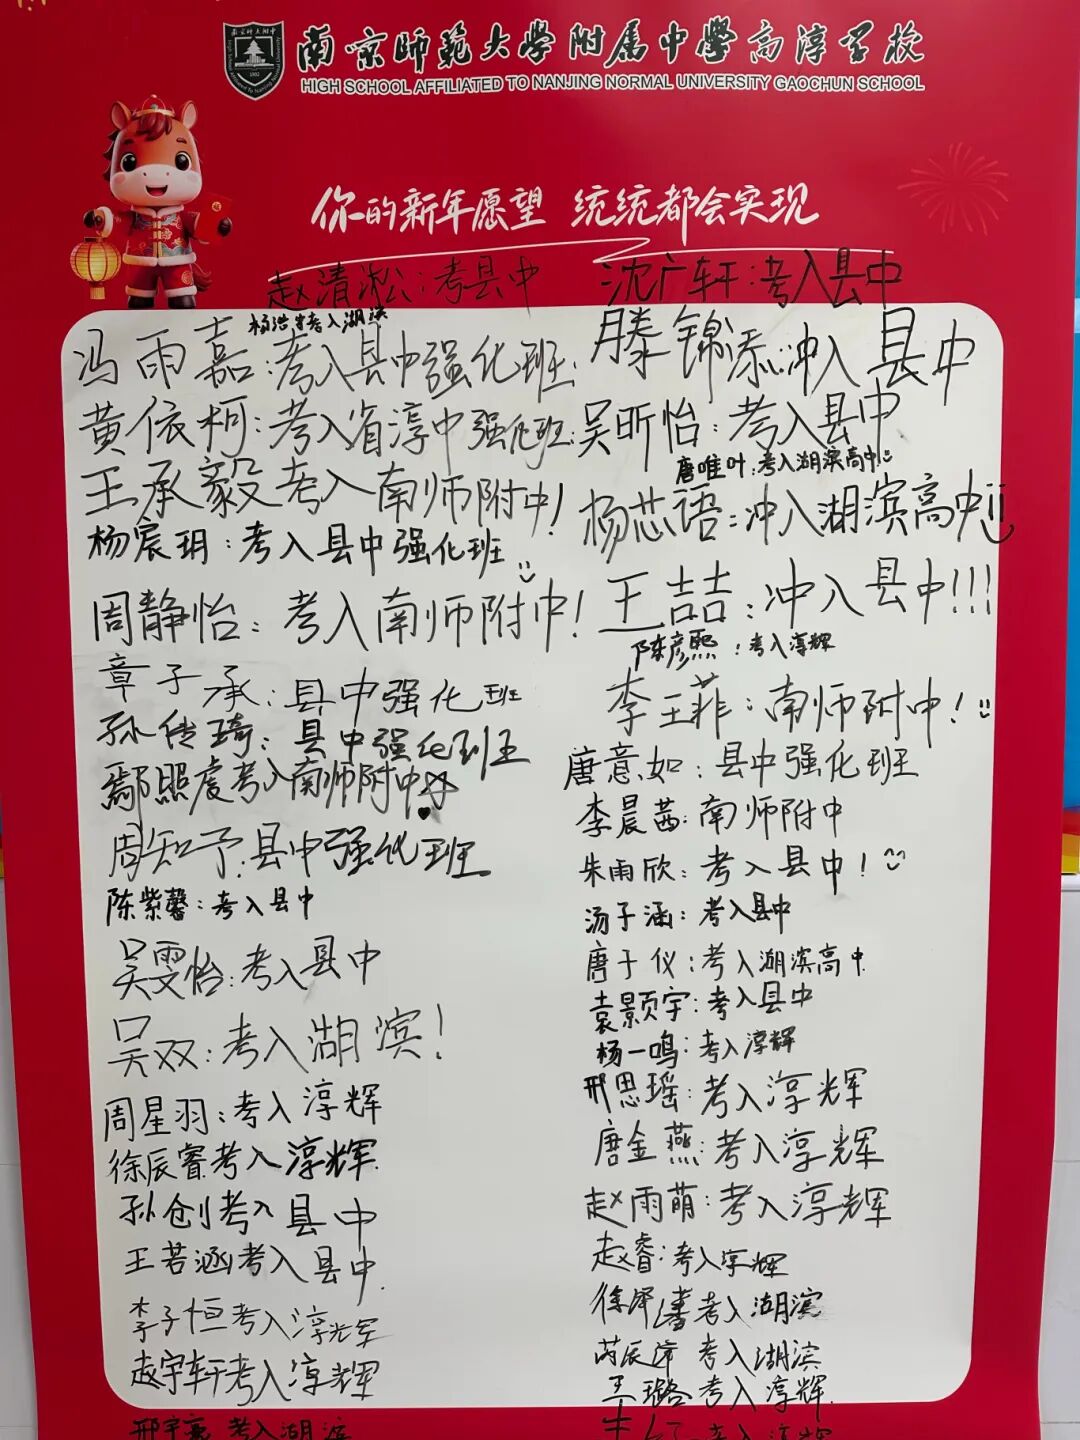 南京师范大学附属中学高淳学校
HIGH SCHOOL AFFILIATED TO NANJING NORMAL UNIVERSITY GAOCHUN SCHOOL
你的新年愿望 统统都会实现
赵清淞:考县中
沈广轩:考入县中
考入湖滨
冯雨嘉:考入县中强化班
滕锦添:冲入县中
黄依柯:考入省淳中强化班
吴昕怡:考入县中
唐唯叶:考入湖滨高中
王承毅考入南师附中!
杨芯语:冲入湖滨高中!!
杨宸玥:考入县中强化班
周静怡:考入南师附中!
王喆:冲入县中!!!
陈彦熙:考入淳辉
章子承:县中强化班
李王菲:南师附中!
孙传琦:县中强化班
唐意如:县中强化班
鄢照虔考入南师附中
李晨茜:南师附中
周知予:县中强化班
朱雨欣:考入县中!
陈紫馨:考入县中
汤子涵:考入县中
吴雯怡:考入县中
唐于仪:考入湖滨高中
袁颢宇:考入县中
吴双:考入湖滨!
杨一鸣:考入淳辉
周星羽:考入淳辉
邢思瑶:考入淳辉
徐辰睿考入淳辉
唐金燕:考入淳辉
孙创考入县中
赵雨萌:考入淳辉
王若涵考入县中
赵睿:考入淳辉
李子恒考入淳辉
考入湖滨
赵宇轩考入淳辉
考入湖滨
王璐考入淳辉
邢宇亮 考入湖滨
考入淳辉